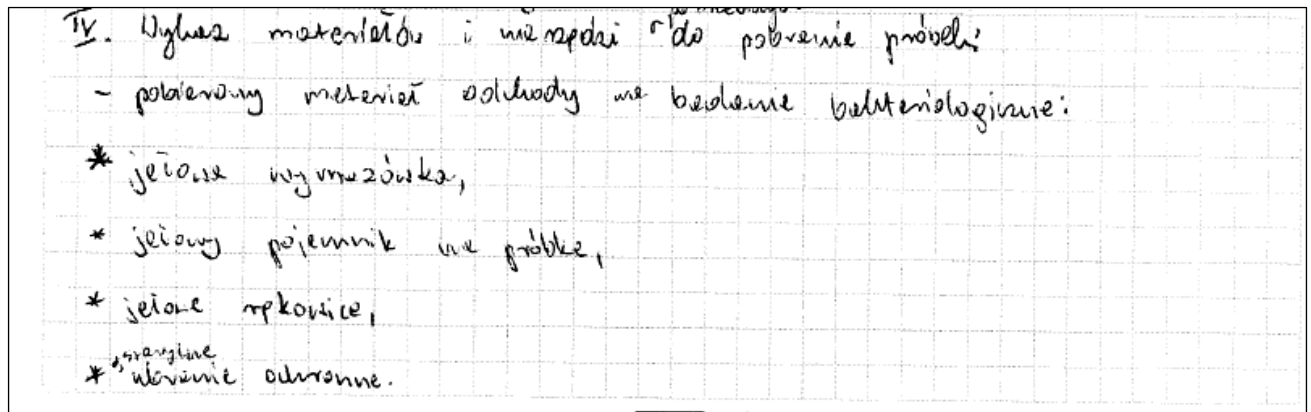 IV. Wykaz materiałów i narzędzi do pobrania próbek:
- pobierany materiał odchody na badanie bakteriologiczne:
* jałowa wymazówka,
* jałowy pojemnik na próbkę,
* jałowe rękawice,
* ubranie ochronne.